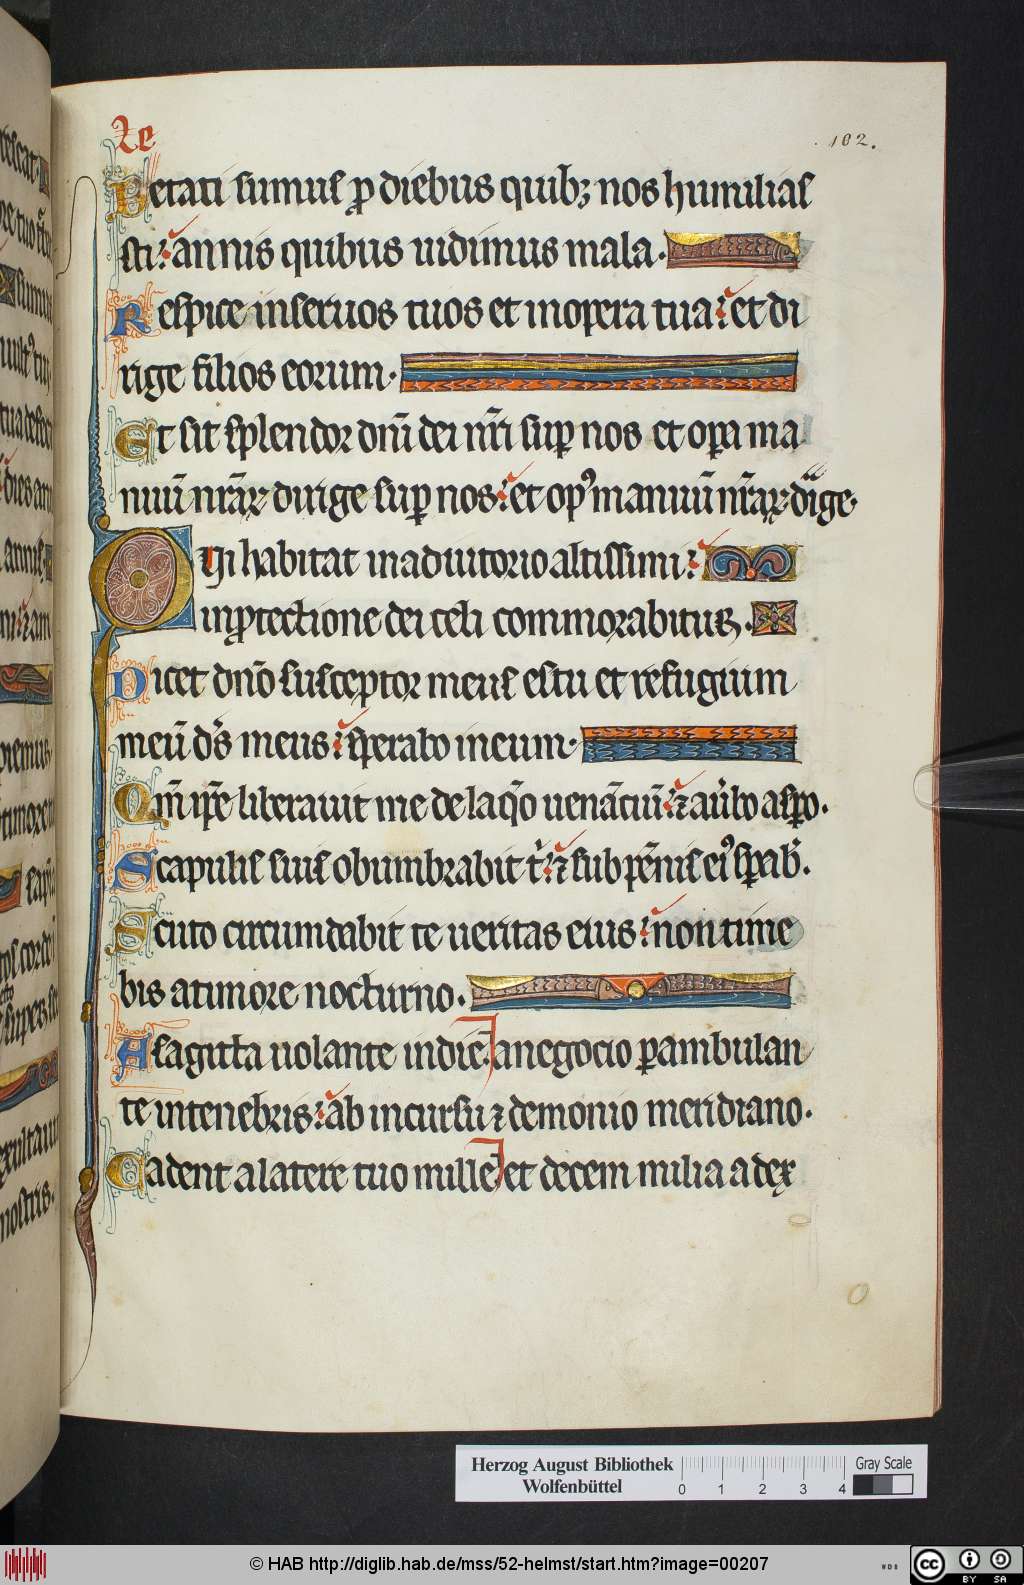 Le
.102.
Betati sumus ꝓ diebus quibꝫ nos humilias
sti: annis quibus uidimus mala.
Respice inseruos tuos et inopera tua: et di
rige filios eorum.
Et sit splendor dn̄i dei nr̄i suꝑ nos et oꝑa ma
nuū nr̄aꝝ dirige suꝑ nos: et opꝰ manuū nr̄aꝝ dirige.
Qui habitat inadiutorio altissimi:
inꝓtectione dei celi commorabitur.
Dicet dn̄o susceptor meus estu et refugium
meū ds̄ meus: sperabo ineum.
Qm̄ ip̄e liberauit me de laq̄o uenātiū: ⁊ au̾bo asꝑo.
Scapulis suis obumbrabit t̾: ⁊ sub pēnis eiꝰ sꝑab̾.
Scuto circumdabit te ueritas eius: non time
bis atimore nocturno.
A sagitta uolante indie: anegocio ꝑambulan
te intenebris: ab incursu ⁊ demonio meridiano.
Cadent alatere tuo mille: et decem milia adex
Herzog August Bibliothek
Wolfenbüttel
0 1 2 3 4
Gray Scale
© HAB http://diglib.hab.de/mss/52-helmst/start.htm?image=00207
WDB
cc BY SA